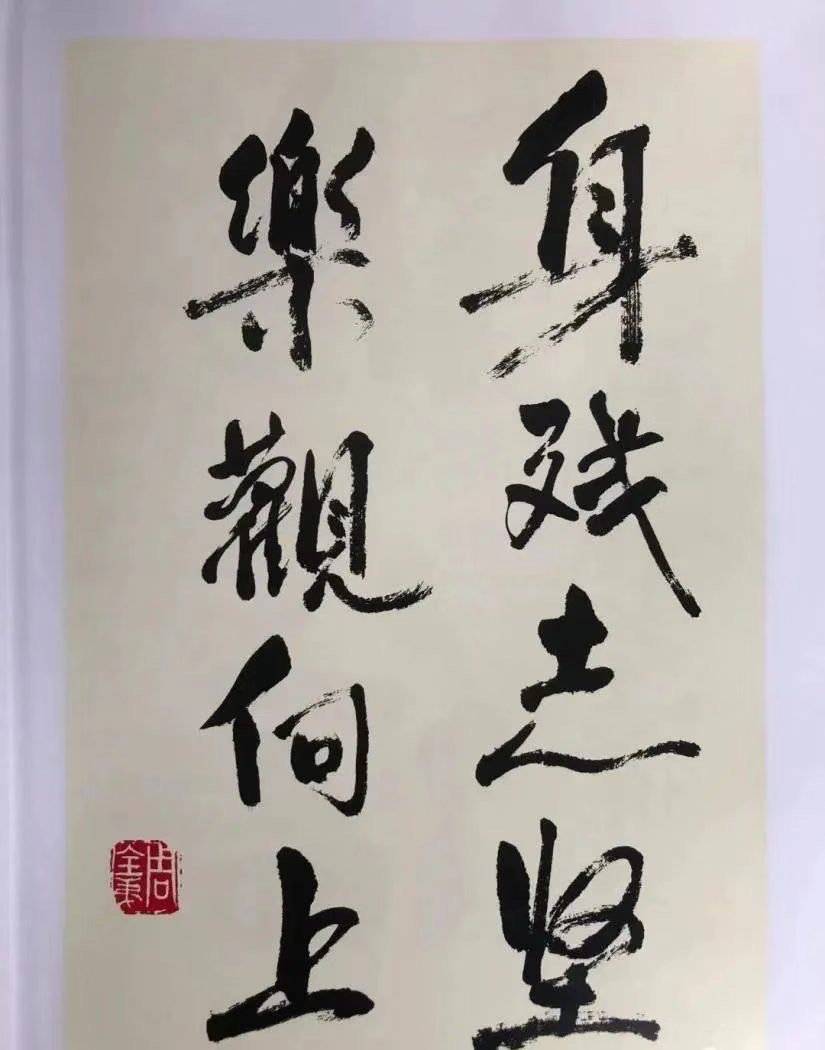 身残志坚
樂觀向上